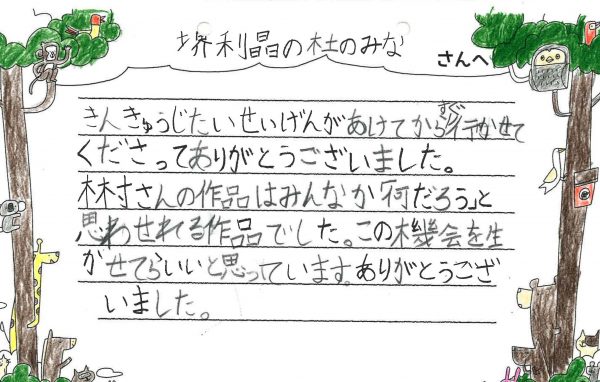 堺利晶の杜のみな さんへ
きんきゅうじたいせいげんがあけてからすぐ行かせて
くださってありがとうございました。
さんの作品はみんなか「何だろう」と
思わせれてる作品でした。この機会を生
かせてらいいと思っています。ありがとうござ
いました。